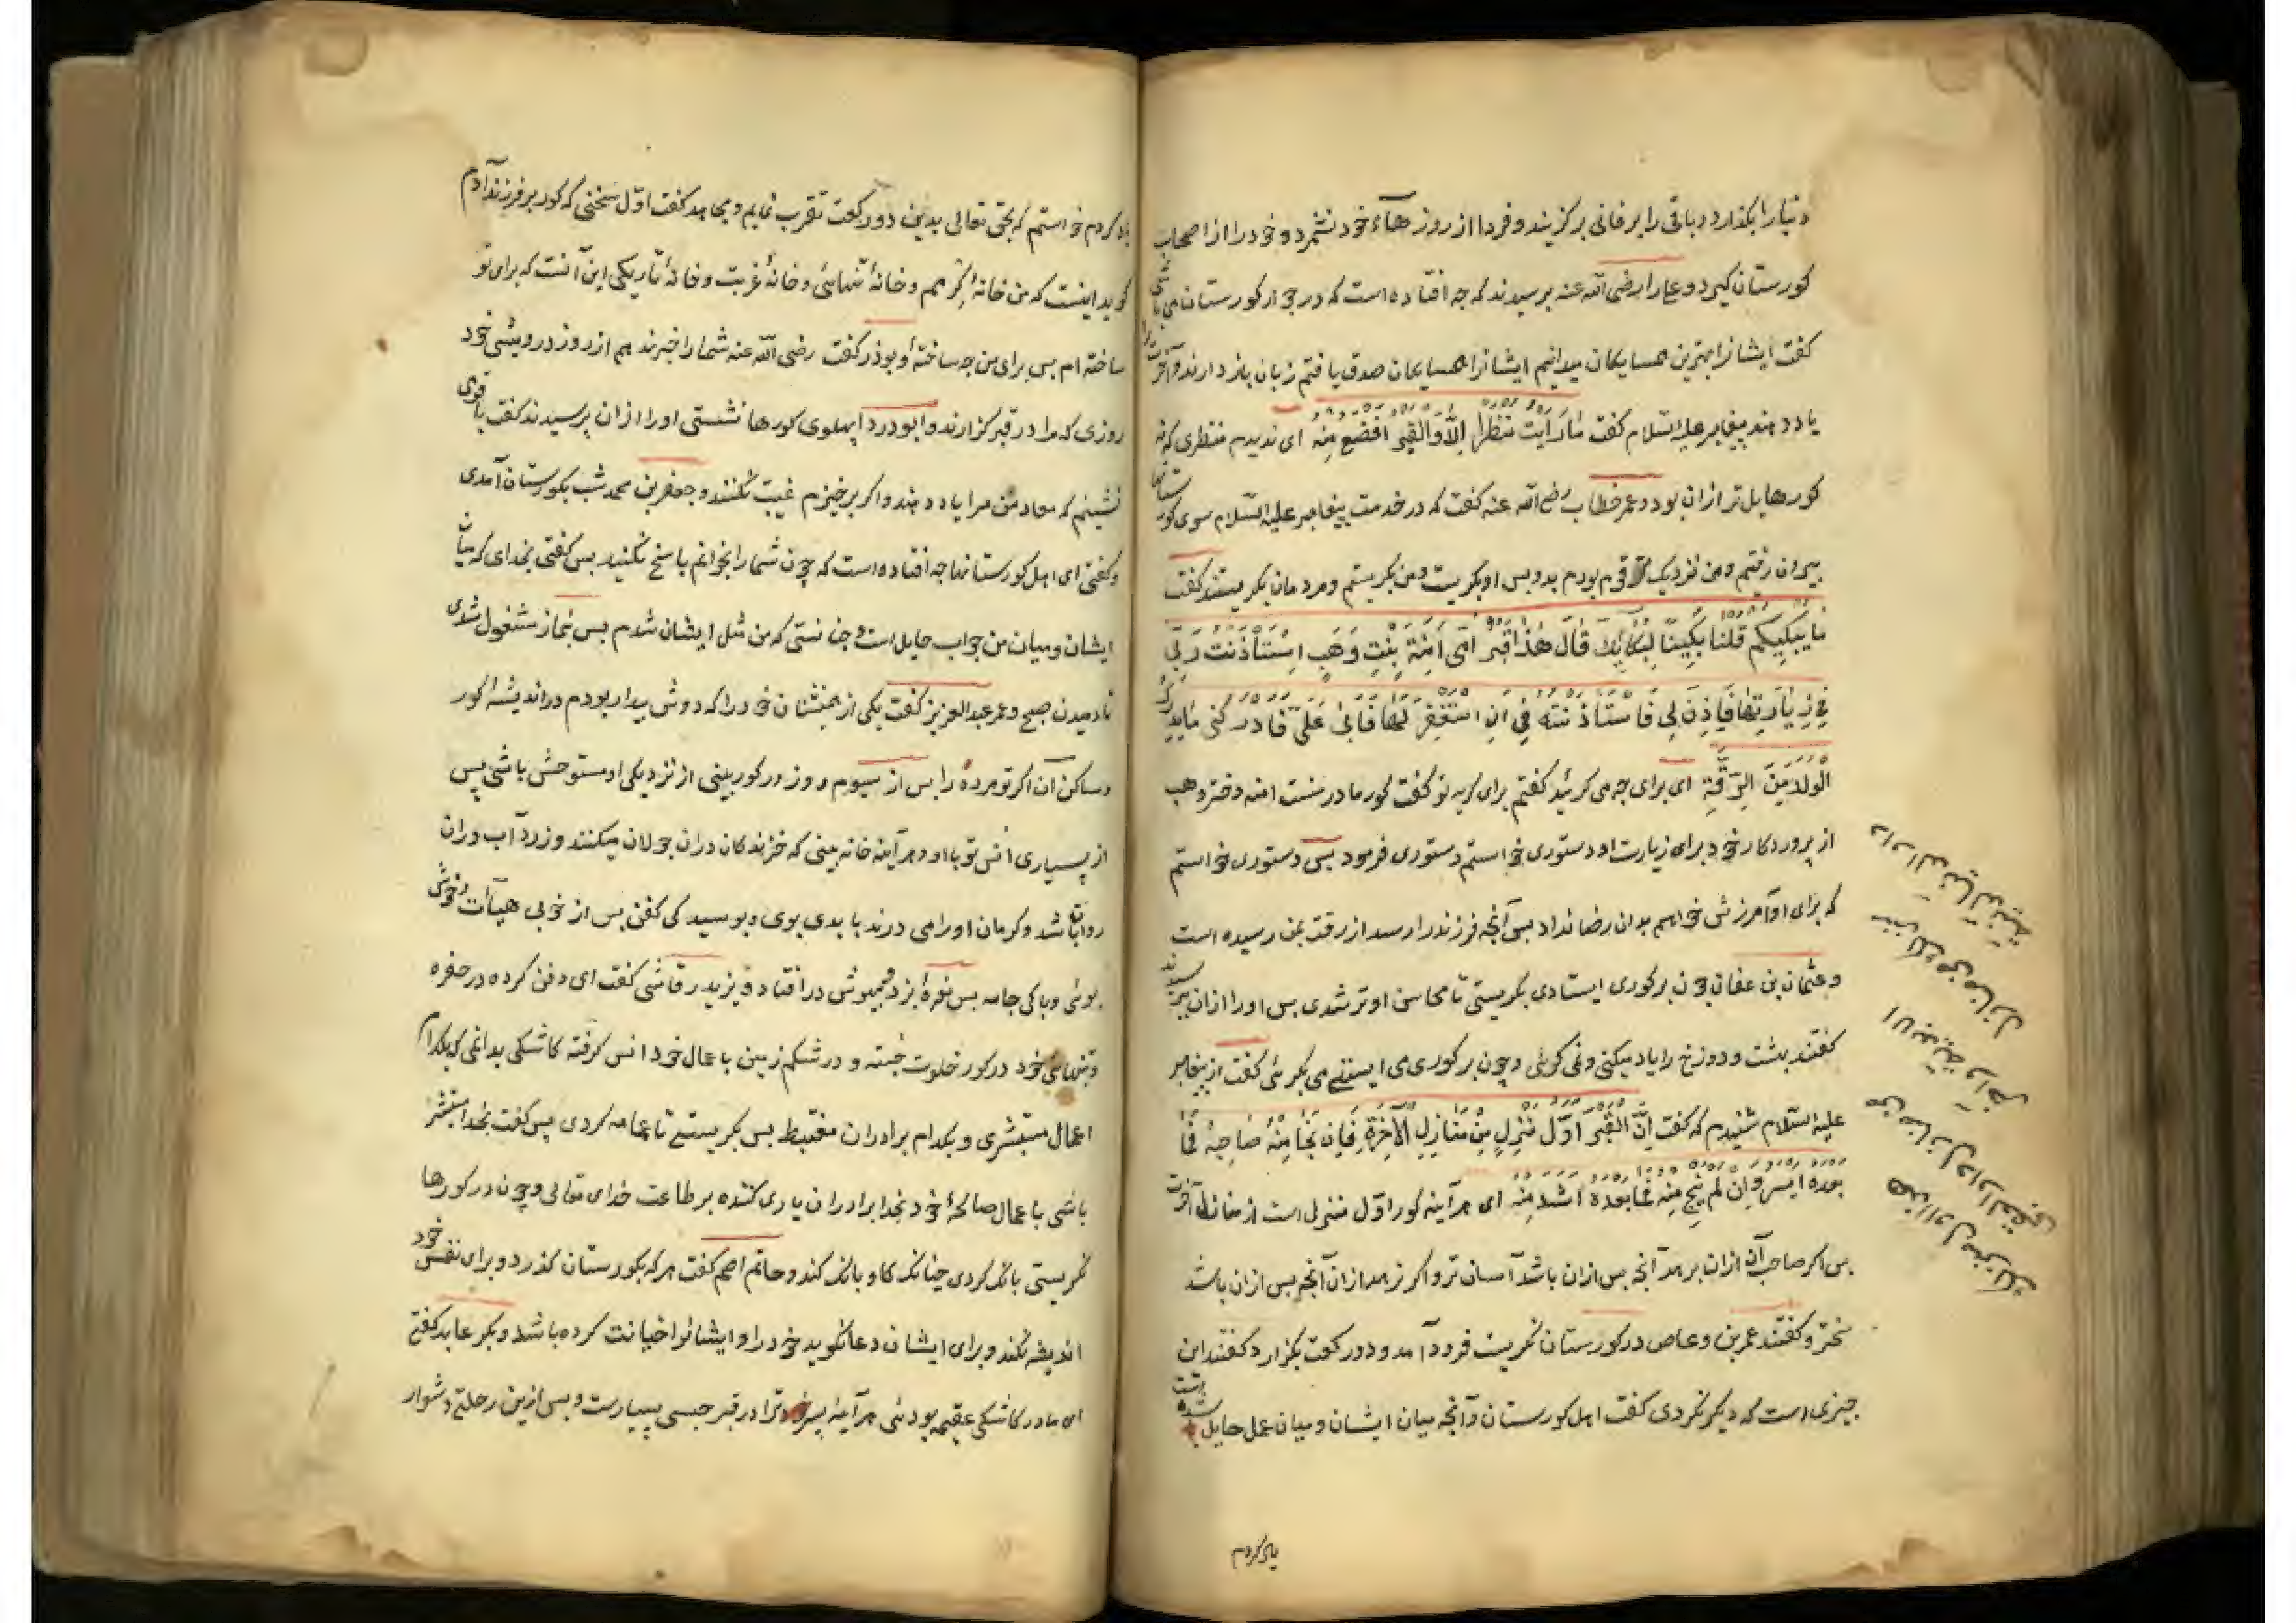 دنیا را بکذارد و باقی را بر فانی برکزیند و فردا از روز هآء خود نشمرد و خود را از اصحاب
کورستان کیرد و علی را رضی الله عنه پرسیدند که چه افتاده است که در جوار کورستان می باشی
کفت ایشانرا بهترین همسایکان میدانیم ایشانرا همسایکان صدق یافتم زبان باز دارند و آخرت را
یاد دهند پیغامبر علیه السلام کفت مَا رَاَیْتُ مَنْظَرًا اِلَّا وَالْقَبْرُ اَفْضَعُ مِنْهُ ای ندیدم منظری که نه
کور هایل تر از ان بود و عمر خطاب رضی الله عنه کفت که در خدمت پیغامبر علیه السّلام سوی کورستانها
بیرون رفتیم و من نزدیک تر قوم بودم بدو بس او بکریست و من بکریستم و مردمان بکریستند کفت
مَا یُبْکِیکُم قُلْنَا بَکَیْنَا لِبُکَائِکَ قَالَ هٰذَا قَبْرُ اُمِّی اٰمِنَةَ بِنْتِ وَهَبٍ اِسْتَأْذَنْتُ رَبِّی
فِی زِیَارَتِهَا فَاَذِنَ لِی فَاسْتَاذَنْتُهُ فِی اَنِ اسْتَغْفِرَ لَهَا فَاَبٰی عَلَیَّ فَادْرَکَنِی مَا یُدْرِکُ
الْوَلَدَ مِنَ الرِّقَّةِ ای برای چه می کرئید کفتیم برای کریه تو کفت کور مادر منست امنه دختر وهب
از پروردکار خود برای زیارت او دستوری خواستم دستوری فرمود بس دستوری خواستم
که برای او آمرزش خواهم بدان رضا نداد بس آنچه فرزند را رسد از رقت بمن رسیده است
و عثمان بن عفان چون بر کوری ایستادی بکریستی تا محاسن او تر شدی بس او را ازان پرسیدند
کفتند بهشت و دوزخ را یاد میکنی و نمی کرئی و چون بر کوری می ایستی می بکرئی کفت از پیغامبر
علیه السّلام شنیدم که کفت اِنَّ الْقَبْرَ اَوَّلُ مَنْزِلٍ مِنْ مَنَازِلِ الْاٰخِرَةِ فَاِنْ نَجَا مِنْهُ صَاحِبُهُ فَمَا
بَعْدَهُ اَیْسَرُ وَاِنْ لَمْ یَنْجُ مِنْهُ فَمَا بَعْدَهُ اَشَدُّ مِنْهُ ای هر آینه کور اوّل منزل است از منازل آخرت
بس اکر صاحب آن ازان برهد آنچه بس ازان باشد آسان تر و اکر نرهد ازان آنچه بس ازان باشد
سختر و کفتند عمر بن وعاص در کورستان نکریست فرود آمد و دو رکعت بکزارد کفتند این
چیزی است که دیکر نکردی کفت اهل کورستان و آنچه میان ایشان و میان عمل حایل شده است
یاد کردم
یاد کردم خواستم که بحق تعالی بدین دو رکعت تقرب نمایم و مجاهد کفت اوّل سخنی که کور بر فرزند آدم
کوید اینست که من خانهٔ کرمم و خانهٔ تنهائی و خانهٔ غربت و خانهٔ تاریکی این آنست که برای تو
ساخته ام بس برای من چه ساختهٔ و بوذر کفت رضی الله عنه شما را خبر ندهم از روز درویشی خود
روزی که مرا در قبر کزارند و ابودردا پهلوی کورها نشستی او را ازان پرسیدند کفت با قومی
نشینم که معاد من مرا یاد دهند و اکر برخیزم غیبت نکنند و جعفر بن محمد شب بکورستان آمدی
و کفتی ای اهل کورستانها چه افتاده است که چون شما را بخوانم پاسخ نکنید بس کفتی بخدای که میان
ایشان و میان من جواب حایل است و چنانستی که من مثل ایشان شدم بس بنماز مشغول شدی
تا دمیدن صبح و عمر عبد العزیز کفت یکی از همنشنان خود را که دوش بیدار بودم در اندیشهٔ کور
و ساکن آن اکر تو مرده را بس از سیوم روز در کور بینی از نزدیکی او مستوحش باشی پس
از بسیاری انس تو با او و هر آینه خانه بینی که خزندکان دران جولان میکنند و زرد آب دران
روان باشد و کرمان او را می درند با بدی بوی و بوسیدکی کفن بس از خوبی هیأت و خوش
بوئی و باکی جامه بس نعرهٔ بزد و بیهوش در افتاد و یزید رقاشی کفت ای دفن کرده در حفره
و بتنهائی خود در کور خلوت جسته و در شکم زمین با عمال خود انس کرفته کاشکی بدانمی که بکدام
اعمال مستبشری و بکدام برادران مغتبط بس بکریستی تا عمامه کردی پس کفت بخدا مستبشر
باشی با عمال صالحهٔ خود بخدا برادران یاری کننده بر طاعت خدای تعالی و چون در کورها
نکریستی بانک کردی چنانک کاو بانک کند و حاتم اصم کفت هر که بکورستان کذرد و برای نفس خود
اندیشه نکند و برای ایشان دعا نکوید خود را و ایشانرا خیانت کرده باشد و بکر عابد کفتی
ای مادر کاشکی عقیمه بودئی هر آینه پسر خود ترا در قبر حبسی بسیارست و بس ازین رحلتی دشوار